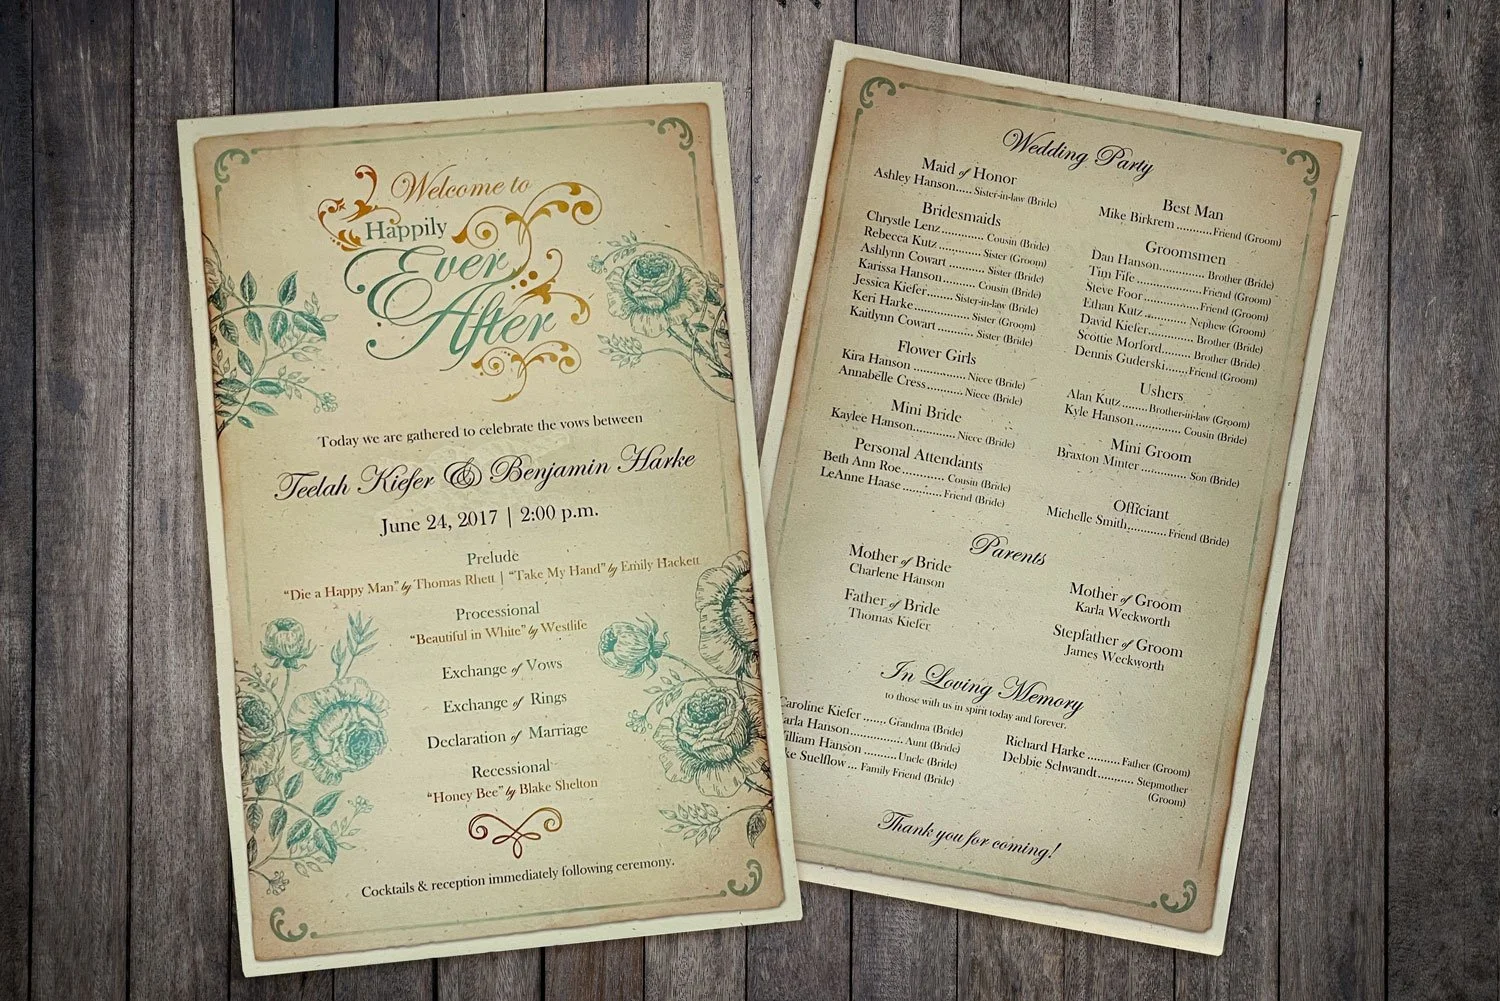 Welcome to
Happily
Ever
After
Today we are gathered to celebrate the vows between
Teelah Kiefer & Benjamin Harke
June 24, 2017 | 2:00 p.m.
Prelude
"Die a Happy Man" by Thomas Rhett | "Take My Hand" by Emily Hackett
Processional
"Beautiful in White" by Westlife
Exchange of Vows
Exchange of Rings
Declaration of Marriage
Recessional
"Honey Bee" by Blake Shelton
Cocktails & reception immediately following ceremony.
Wedding Party
Maid of Honor
Ashley Hanson..... Sister-in-law (Bride)
Bridesmaids
Chrystle Lenz............ Cousin (Bride)
Rebecca Kutz ............ Sister (Groom)
Ashlynn Cowart .......... Sister (Bride)
Karissa Hanson .......... Cousin (Bride)
Jessica Kiefer....... Sister-in-law (Bride)
Keri Harke ............... Sister (Groom)
Kaitlynn Cowart .......... Sister (Bride)
Flower Girls
Kira Hanson .............. Niece (Bride)
Annabelle Cress.......... Niece (Bride)
Mini Bride
Kaylee Hanson............ Niece (Bride)
Personal Attendants
Beth Ann Roe............ Cousin (Bride)
LeAnne Haase ........... Friend (Bride)
Best Man
Mike Birkrem ..........Friend (Groom)
Groomsmen
Dan Hanson............. Brother (Bride)
Tim Fife ................. Friend (Groom)
Steve Foor............... Friend (Groom)
Ethan Kutz ............ Nephew (Groom)
David Kiefer............ Brother (Bride)
Scottie Morford......... Brother (Bride)
Dennis Guderski...... Friend (Groom)
Ushers
Alan Kutz ....... Brother-in-law (Groom)
Kyle Hanson ............. Cousin (Bride)
Mini Groom
Braxton Minter ............ Son (Bride)
Officiant
Michelle Smith........... Friend (Bride)
Parents
Mother of Bride
Charlene Hanson
Father of Bride
Thomas Kiefer
Mother of Groom
Karla Weckworth
Stepfather of Groom
James Weckworth
In Loving Memory
to those with us in spirit today and forever.
Caroline Kiefer ...... Grandma (Bride)
arla Hanson.............. Aunt (Bride)
illiam Hanson .......... Uncle (Bride)
ke Suelflow ... Family Friend (Bride)
Richard Harke ......... Father (Groom)
Debbie Schwandt.......... Stepmother
(Groom)
Thank you for coming!